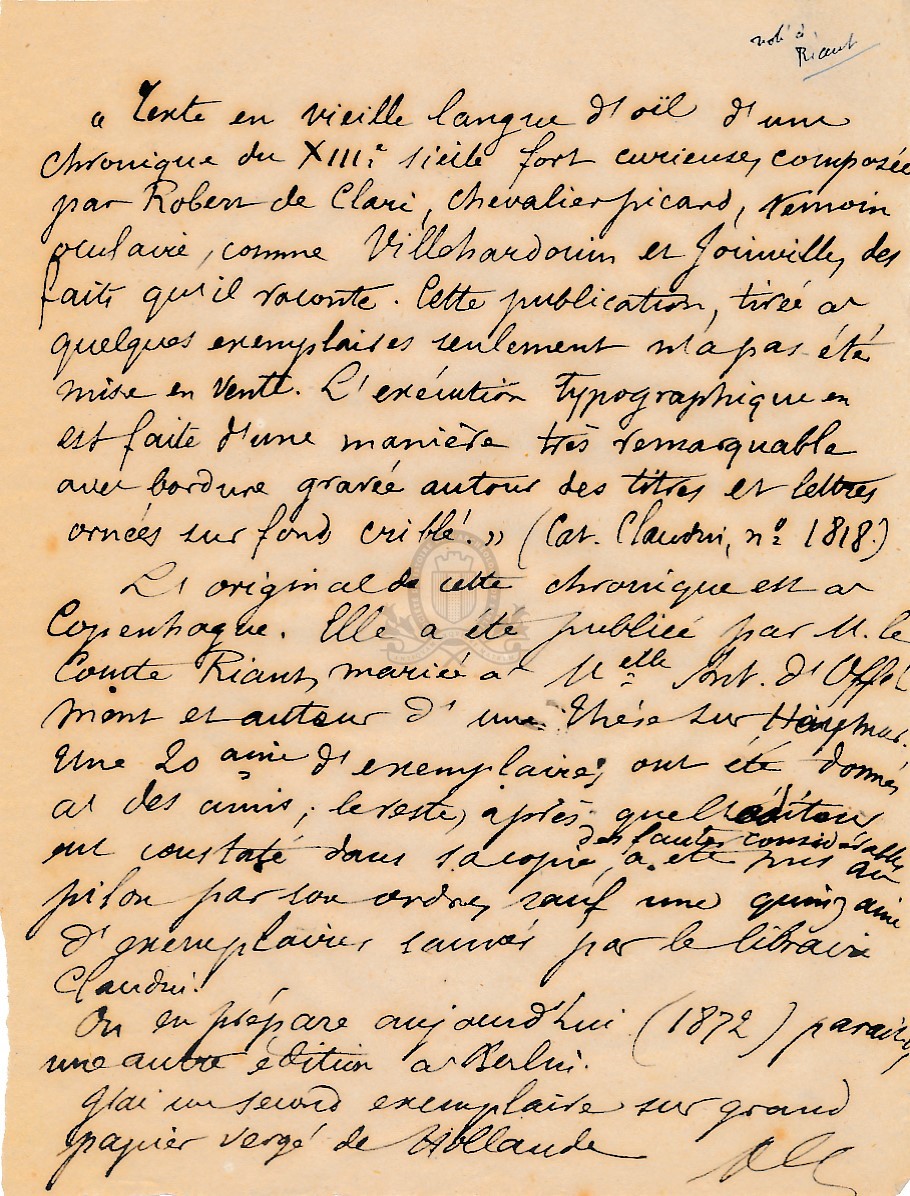 volé à
Riant
« Texte en vieille langue d'oïl d'une
chronique du XIIIe siècle fort curieuse, composée
par Robert de Clari, chevalier picard, témoin
oculaire, comme Villehardouin et Joinville, des
faits qu'il raconte. Cette publication, tirée à
quelques exemplaires seulement n'a pas été
mise en vente. L'exécution typographique en
est faite d'une manière très remarquable
avec bordure gravée autour des titres et lettres
ornées sur fond criblé. » (Cat. Claudin, no 1818.)
L'original de cette chronique est à
Copenhague. Elle a été publiée par M. le
Comte Riant, mariée à Melle Ant. d'Offé
mont et auteur d'une thèse sur Haymar.
Une 20aine d'exemplaires ont été donnés
à des amis ; le reste, après que l'éditeur
eut constaté dans sa copie des fautes considérables, a été mis au
pilon par son ordre, sauf une quinzaine
d'exemplaires sauvés par le libraire
Claudin.
On en prépare aujourd'hui (1872) paraît-il
une autre édition à Berlin.
J'ai un second exemplaire sur grand
papier vergé de Hollande